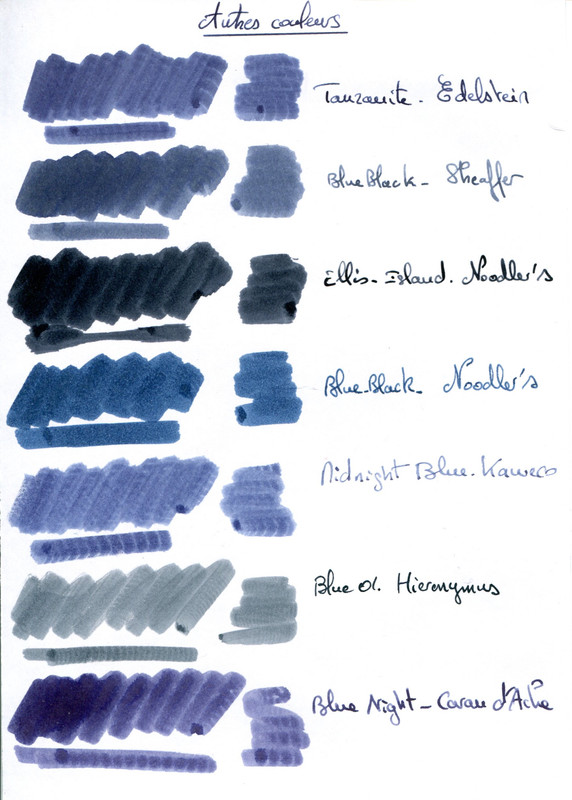 Autres couleurs
Tanzanite - Edelstein
Blue Black - Sheaffer
Ellis-Island. Noodler's
Blue-Black - Noodler's
Midnight Blue. Kaweco
Blue 01. Hieronymus
Blue Night - Caran d'Ache